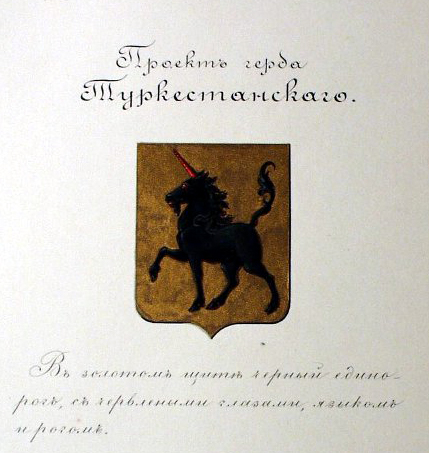 Проектъ герба
Туркестанскаго.
Въ золотомъ щитѣ черный едино-
рогъ, съ червлеными глазами, языкомъ
и рогомъ.